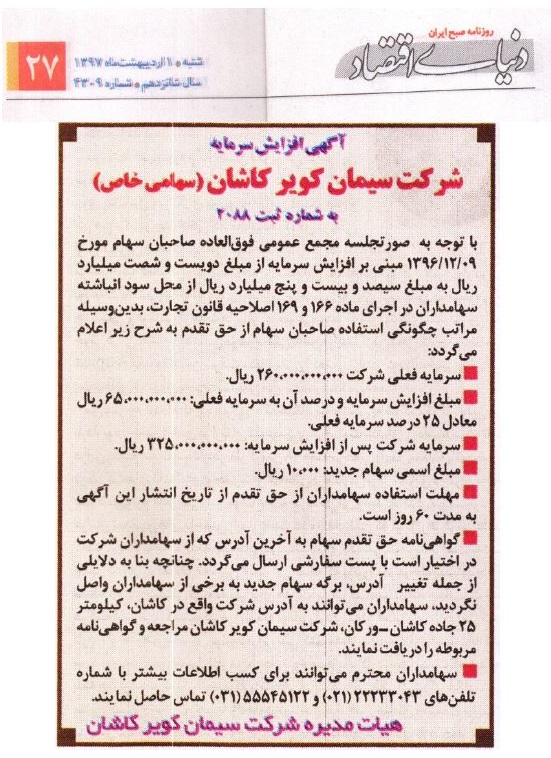 روزنامه صبح ایران
دنیای اقتصاد
شنبه ● ۱ اردیبهشت‌ماه ۱۳۹۷
سال شانزدهم ● شماره ۴۳۰۹
۲۷
آگهی افزایش سرمایه
شرکت سیمان کویر کاشان (سهامی خاص)
به شماره ثبت ۲۰۸۸
با توجه به صورتجلسه مجمع عمومی فوق‌العاده صاحبان سهام مورخ
۱۳۹۶/۱۲/۰۹ مبنی بر افزایش سرمایه از مبلغ دویست و شصت میلیارد
ریال به مبلغ سیصد و بیست و پنج میلیارد ریال از محل سود انباشته
سهامداران در اجرای ماده ۱۶۶ و ۱۶۹ اصلاحیه قانون تجارت، بدین‌وسیله
مراتب چگونگی استفاده صاحبان سهام از حق تقدم به شرح زیر اعلام
می‌گردد:
■ سرمایه فعلی شرکت ۲۶۰،۰۰۰،۰۰۰،۰۰۰ ریال.
■ مبلغ افزایش سرمایه و درصد آن به سرمایه فعلی: ۶۵،۰۰۰،۰۰۰،۰۰۰ ریال
معادل ۲۵ درصد سرمایه فعلی.
■ سرمایه شرکت پس از افزایش سرمایه: ۳۲۵،۰۰۰،۰۰۰،۰۰۰ ریال.
■ مبلغ اسمی سهام جدید: ۱۰،۰۰۰ ریال.
■ مهلت استفاده سهامداران از حق تقدم از تاریخ انتشار این آگهی
به مدت ۶۰ روز است.
■ گواهی‌نامه حق تقدم سهام به آخرین آدرس که از سهامداران شرکت
در اختیار است با پست سفارشی ارسال می‌گردد. چنانچه بنا به دلایلی
از جمله تغییر آدرس، برگه سهام جدید به برخی از سهامداران واصل
نگردید، سهامداران می‌توانند به آدرس شرکت واقع در کاشان، کیلومتر
۲۵ جاده کاشان ـ ورکان، شرکت سیمان کویر کاشان مراجعه و گواهی‌نامه
مربوطه را دریافت نمایند.
■ سهامداران محترم می‌توانند برای کسب اطلاعات بیشتر با شماره
تلفن‌های ۲۲۲۳۳۰۴۳ (۰۲۱) و ۵۵۵۴۵۱۲۲ (۰۳۱) تماس حاصل نمایند.
هیات مدیره شرکت سیمان کویر کاشان